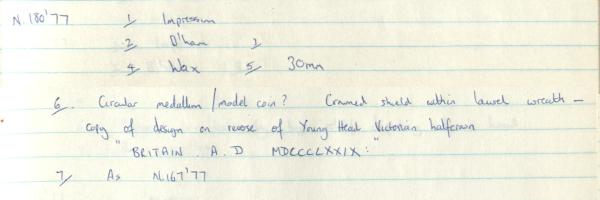 N. 180'77 1/ Impression
2/ D'ham 3/
4/ Wax 5/ 30mm
6/. Circular medallion / model coin? Crowned shield within laurel wreath –
copy of design on reverse of Young Head Victorian halfcrown
"BRITAIN. A. D MDCCCLXXIX:"
7/ As N.167'77